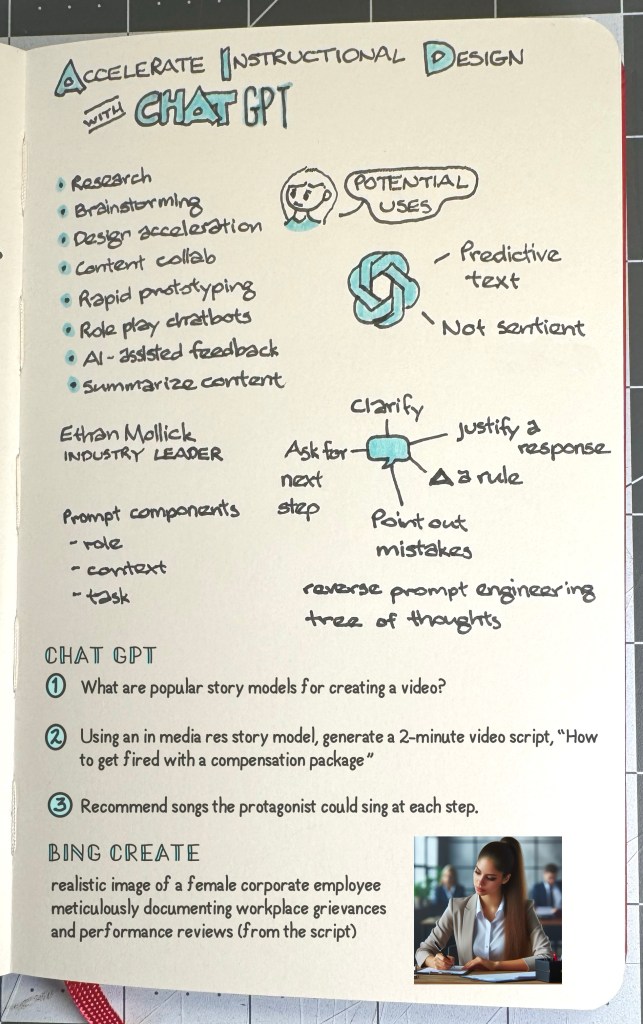 ACCELERATE INSTRUCTIONAL DESIGN
WITH CHAT GPT
• Research
• Brainstorming
• Design acceleration
• Content collab
• Rapid prototyping
• Role play chatbots
• AI-assisted feedback
• Summarize content
POTENTIAL
USES
Predictive
text
Not sentient
Ethan Mollick
INDUSTRY LEADER
Clarify
Justify a
response
Δ a rule
Point out
mistakes
Ask for
next
step
Prompt components
- role
- context
- task
reverse prompt engineering
tree of thoughts
CHAT GPT
1 What are popular story models for creating a video?
2 Using an in media res story model, generate a 2-minute video script, “How
to get fired with a compensation package”
3 Recommend songs the protagonist could sing at each step.
BING CREATE
realistic image of a female corporate employee
meticulously documenting workplace grievances
and performance reviews (from the script)